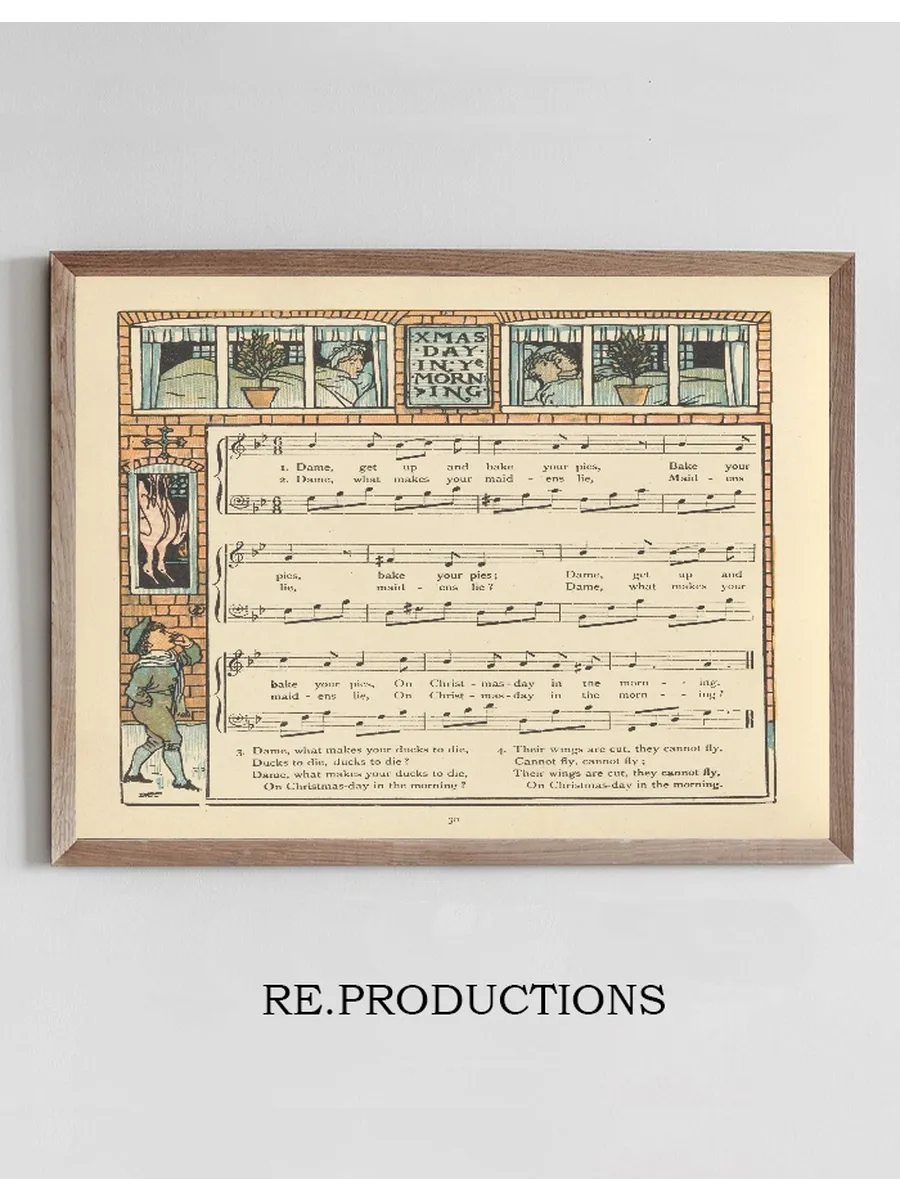 XMAS
·DAY·
IN·Yᵉ
·MORN
ING·
1. Dame, get up and bake your pies, Bake your
2. Dame, what makes your maid - ens lie, Maid - ens
pies, bake your pies; Dame, get up and
lie, maid - ens lie? Dame, what makes your
bake your pies, On Christ - mas-day in the morn - - ing.
maid - ens lie, On Christ - mas-day in the morn - - ing?
3. Dame, what makes your ducks to die,
Ducks to die, ducks to die?
Dame, what makes your ducks to die,
On Christmas-day in the morning?
4. Their wings are cut, they cannot fly.
Cannot fly, cannot fly;
Their wings are cut, they cannot fly,
On Christmas-day in the morning.
30
RE.PRODUCTIONS